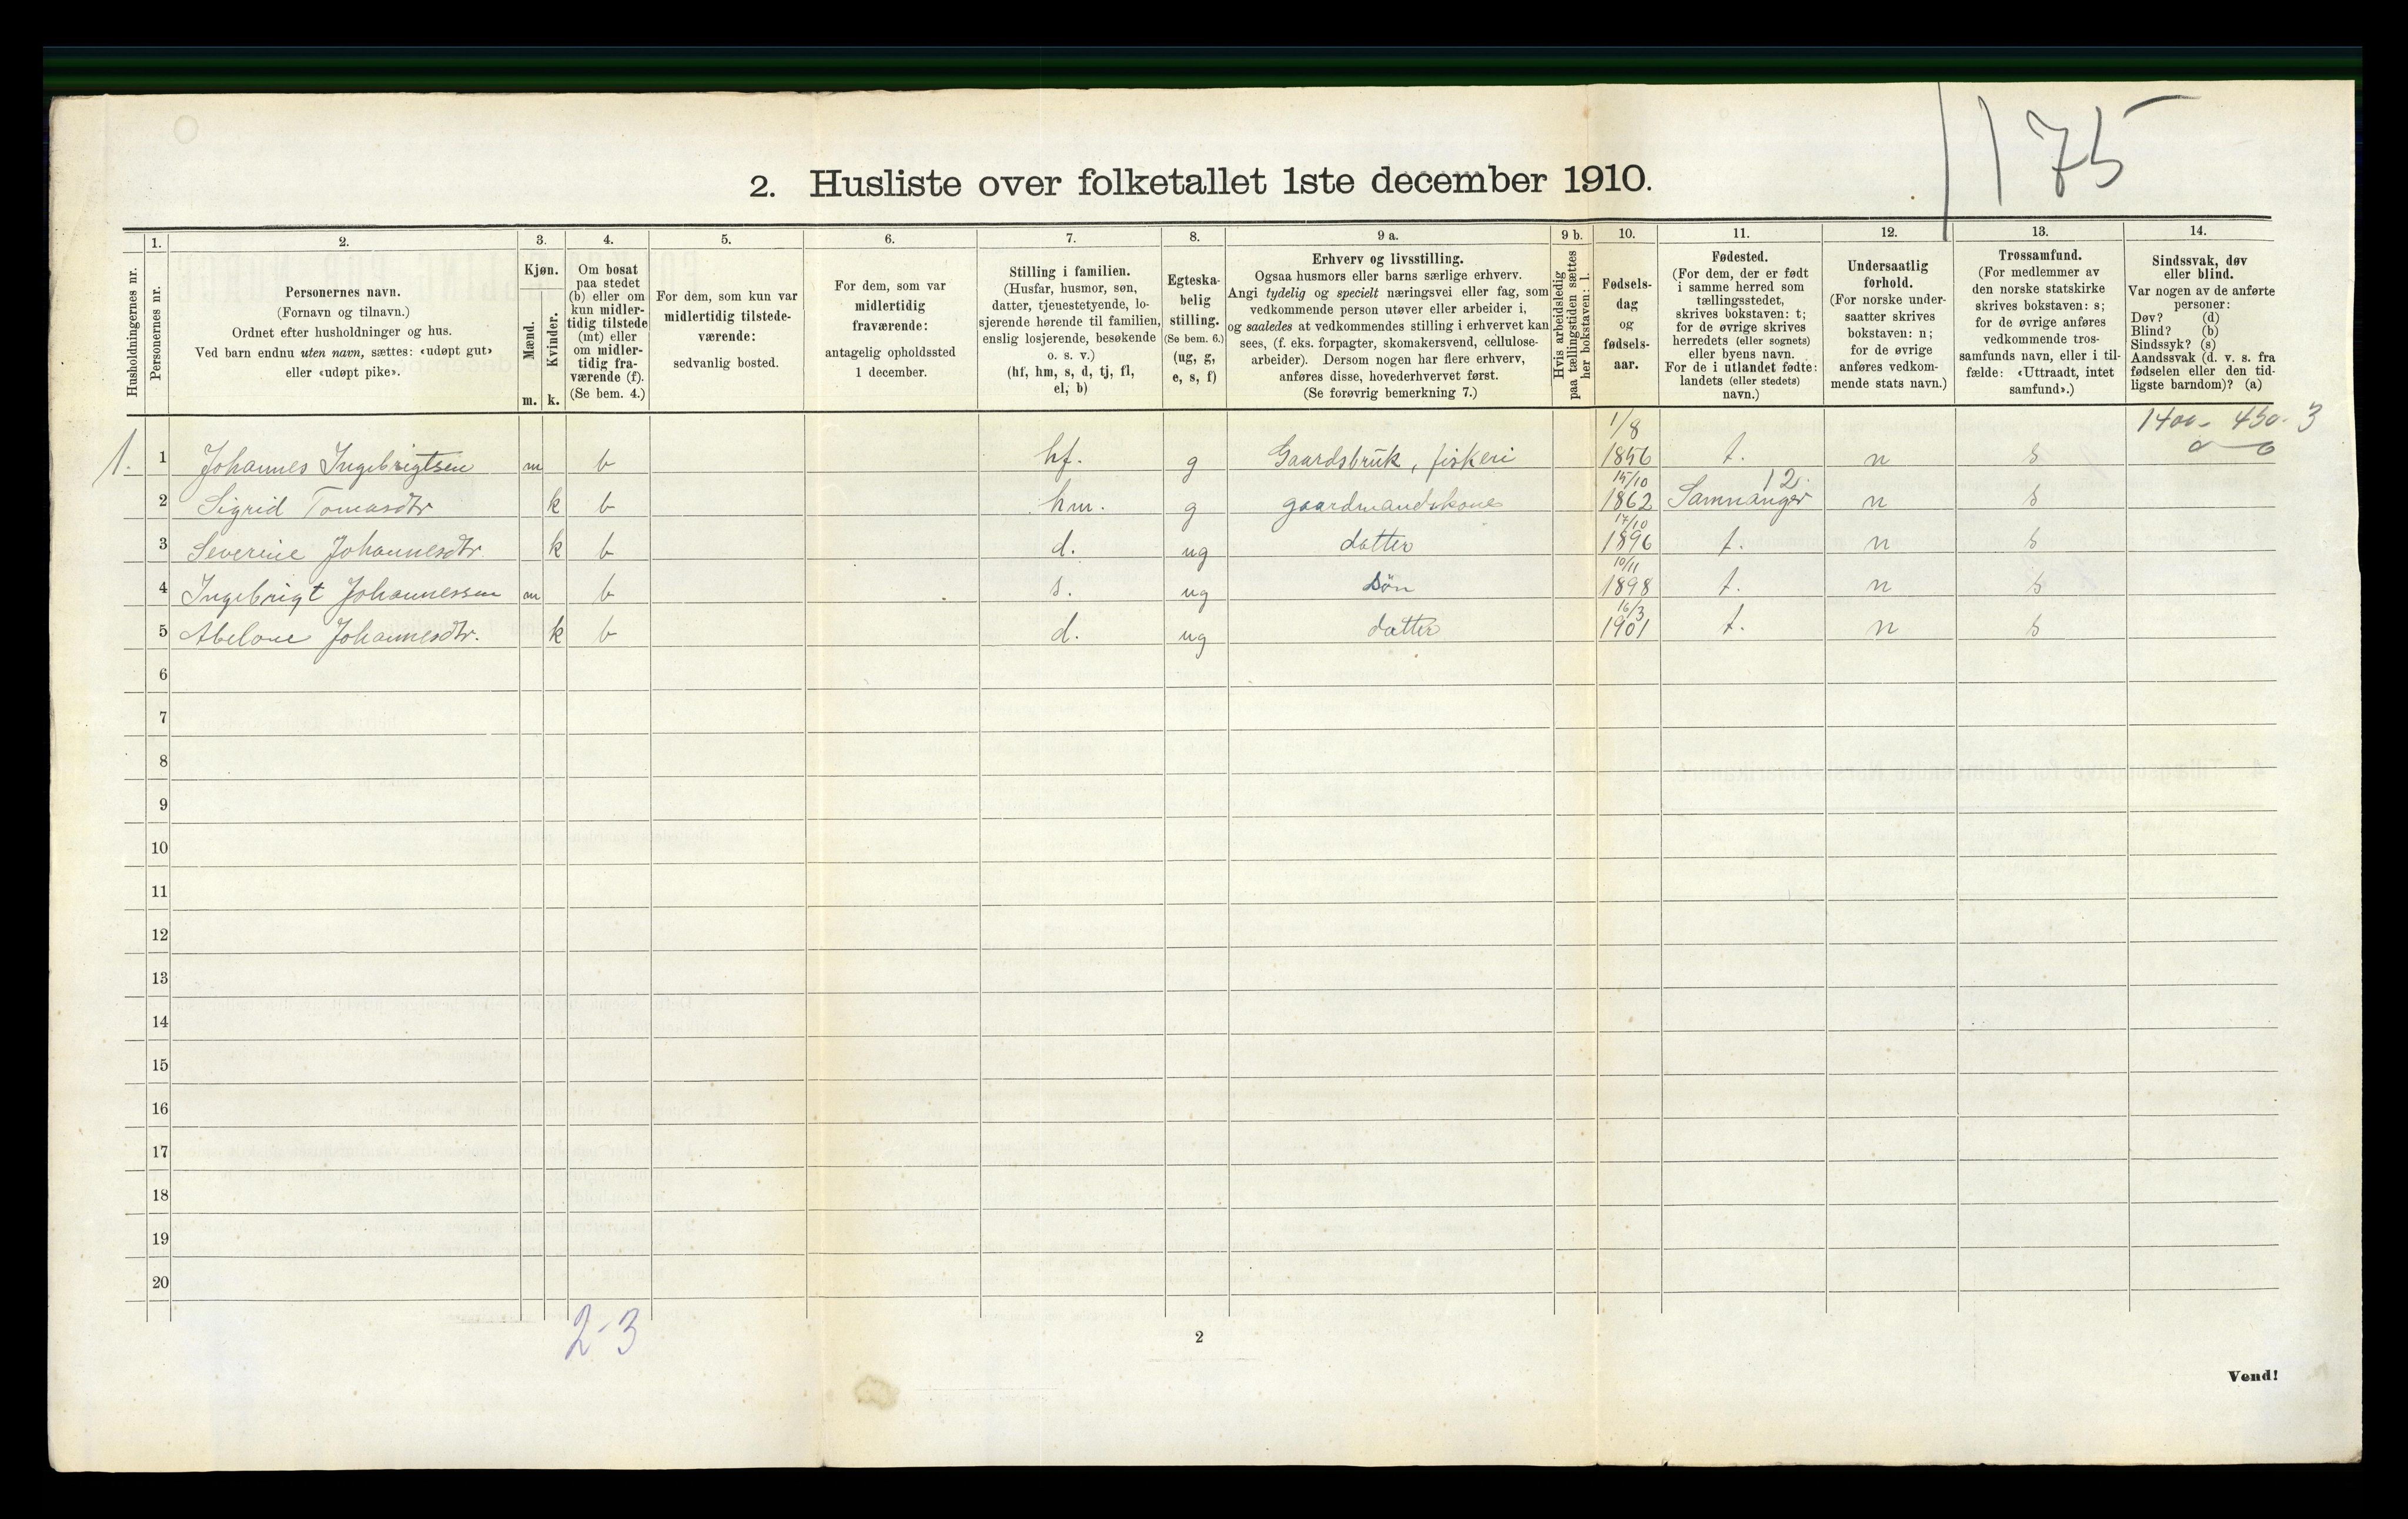 175
2. Husliste over folketallet 1ste december 1910.
Husholdningernes nr.
1.
Personernes nr.
2.
Personernes navn.
(Fornavn og tilnavn.)
Ordnet efter husholdninger og hus.
Ved barn endnu uten navn, sættes: «udøpt gut»
eller «udøpt pike».
3.
Kjøn.
Mænd.
Kvinder.
m. k.
4.
Om bosat
paa stedet
(b) eller om
kun midler-
tidig tilstede
(mt) eller
om midler-
tidig fra-
værende (f).
(Se bem. 4.)
5.
For dem, som kun var
midlertidig tilstede-
værende:
sedvanlig bosted.
6.
For dem, som var
midlertidig
fraværende:
antagelig opholdssted
1 december.
7.
Stilling i familien.
(Husfar, husmor, søn,
datter, tjenestetyende, lo-
sjerende hørende til familien,
enslig losjerende, besøkende
o. s. v.)
(hf, hm, s, d, tj, fl,
el, b)
8.
Egteska-
belig
stilling.
(Se bem. 6.)
(ug, g,
e, s, f)
9 a.
Erhverv og livsstilling.
Ogsaa husmors eller barns særlige erhverv.
Angi tydelig og specielt næringsvei eller fag, som
vedkommende person utøver eller arbeider i,
og saaledes at vedkommendes stilling i erhvervet kan
sees, (f. eks. forpagter, skomakersvend, cellulose-
arbeider). Dersom nogen har flere erhverv,
anføres disse, hovederhvervet først.
(Se forøvrig bemerkning 7.)
9 b.
Hvis arbeidsledig
paa tællingstiden sættes
her bokstaven: l.
10.
Fødsels-
dag
og
fødsels-
aar.
11.
Fødested.
(For dem, der er født
i samme herred som
tællingsstedet,
skrives bokstaven: t;
for de øvrige skrives
herredets (eller sognets)
eller byens navn.
For de i utlandet fødte:
landets (eller stedets)
navn.)
12.
Undersaatlig
forhold.
(For norske under-
saatter skrives
bokstaven: n;
for de øvrige
anføres vedkom-
mende stats navn.)
13.
Trossamfund.
(For medlemmer av
den norske statskirke
skrives bokstaven: s;
for de øvrige anføres
vedkommende tros-
samfunds navn, eller i til-
fælde: «Uttraadt, intet
samfund».)
14.
Sindssvak, døv
eller blind.
Var nogen av de anførte
personer:
Døv? (d)
Blind? (b)
Sindssyk? (s)
Aandssvak (d. v. s. fra
fødselen eller den tid-
ligste barndom)? (a)
1400 - 450 - 3
0 — 0
1. 1 Johannes Ingebrigtsen m b hf. g Gaardsbruk, fiskeri 1/8 1856 t. n s
2 Sigrid Tomasdtr k b hm. g gaardmandskone 15/10 1862 Samnanger 12. n s
3 Severine Johannesdtr. k b d. ug datter 17/10 1896 t. n s
4 Ingebrigt Johannessen m b s. ug Sön 10/11 1898 t. n s
5 Abelone Johannesdtr. k b d. ug datter 16/3 1901 t. n s
6
7
8
9
10
11
12
13
14
15
16
17
18
19
20
2-3
2
Vend!